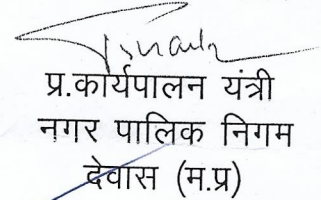 प्र.कार्यपालन यंत्री
नगर पालिक निगम
देवास (म.प्र)